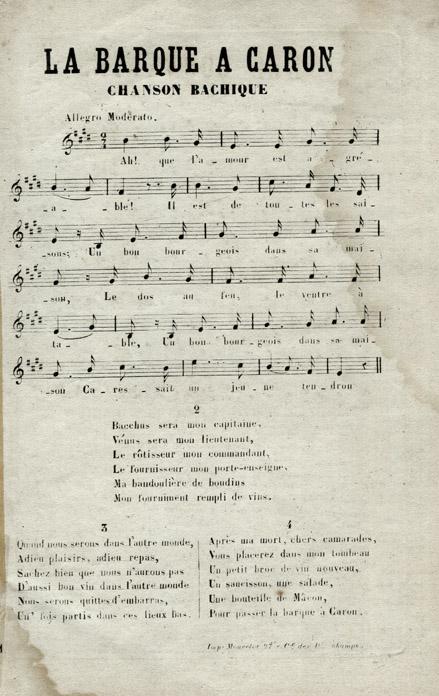 LA BARQUE A CARON
CHANSON BACHIQUE
Allegro Moderato.
Ah! que l'a _ mour est a _ gré _
_ a _ ble! Il est de tou _ tes les sai _
_ sons; Un bon bour _ geois dans sa mai _
_ son, Le dos au feu, le ventre à
ta _ ble, Un bon bour _ geois dans sa mai _
_ son Ca _ res _ sait un jeu _ ne ten _ dron
2
Bacchus sera mon capitaine,
Vénus sera mon lieutenant,
Le rôtisseur mon commandant,
Le fournisseur mon porte-enseigne,
Ma bandoulière de boudins
Mon fourniment rempli de vins.
3
Quand nous serons dans l'autre monde,
Adieu plaisirs, adieu repas,
Sachez bien que nous n'aurons pas
D'aussi bon vin dans l'autre monde
Nous serons quittes d'embarras,
Un' fois partis dans ces lieux bas.
4
Après ma mort, chers camarades,
Vous placerez dans mon tombeau
Un petit broc de vin nouveau,
Un saucisson, une salade,
Une bouteille de Mâcon,
Pour passer la barque à Caron.
Imp: 27 des champs.